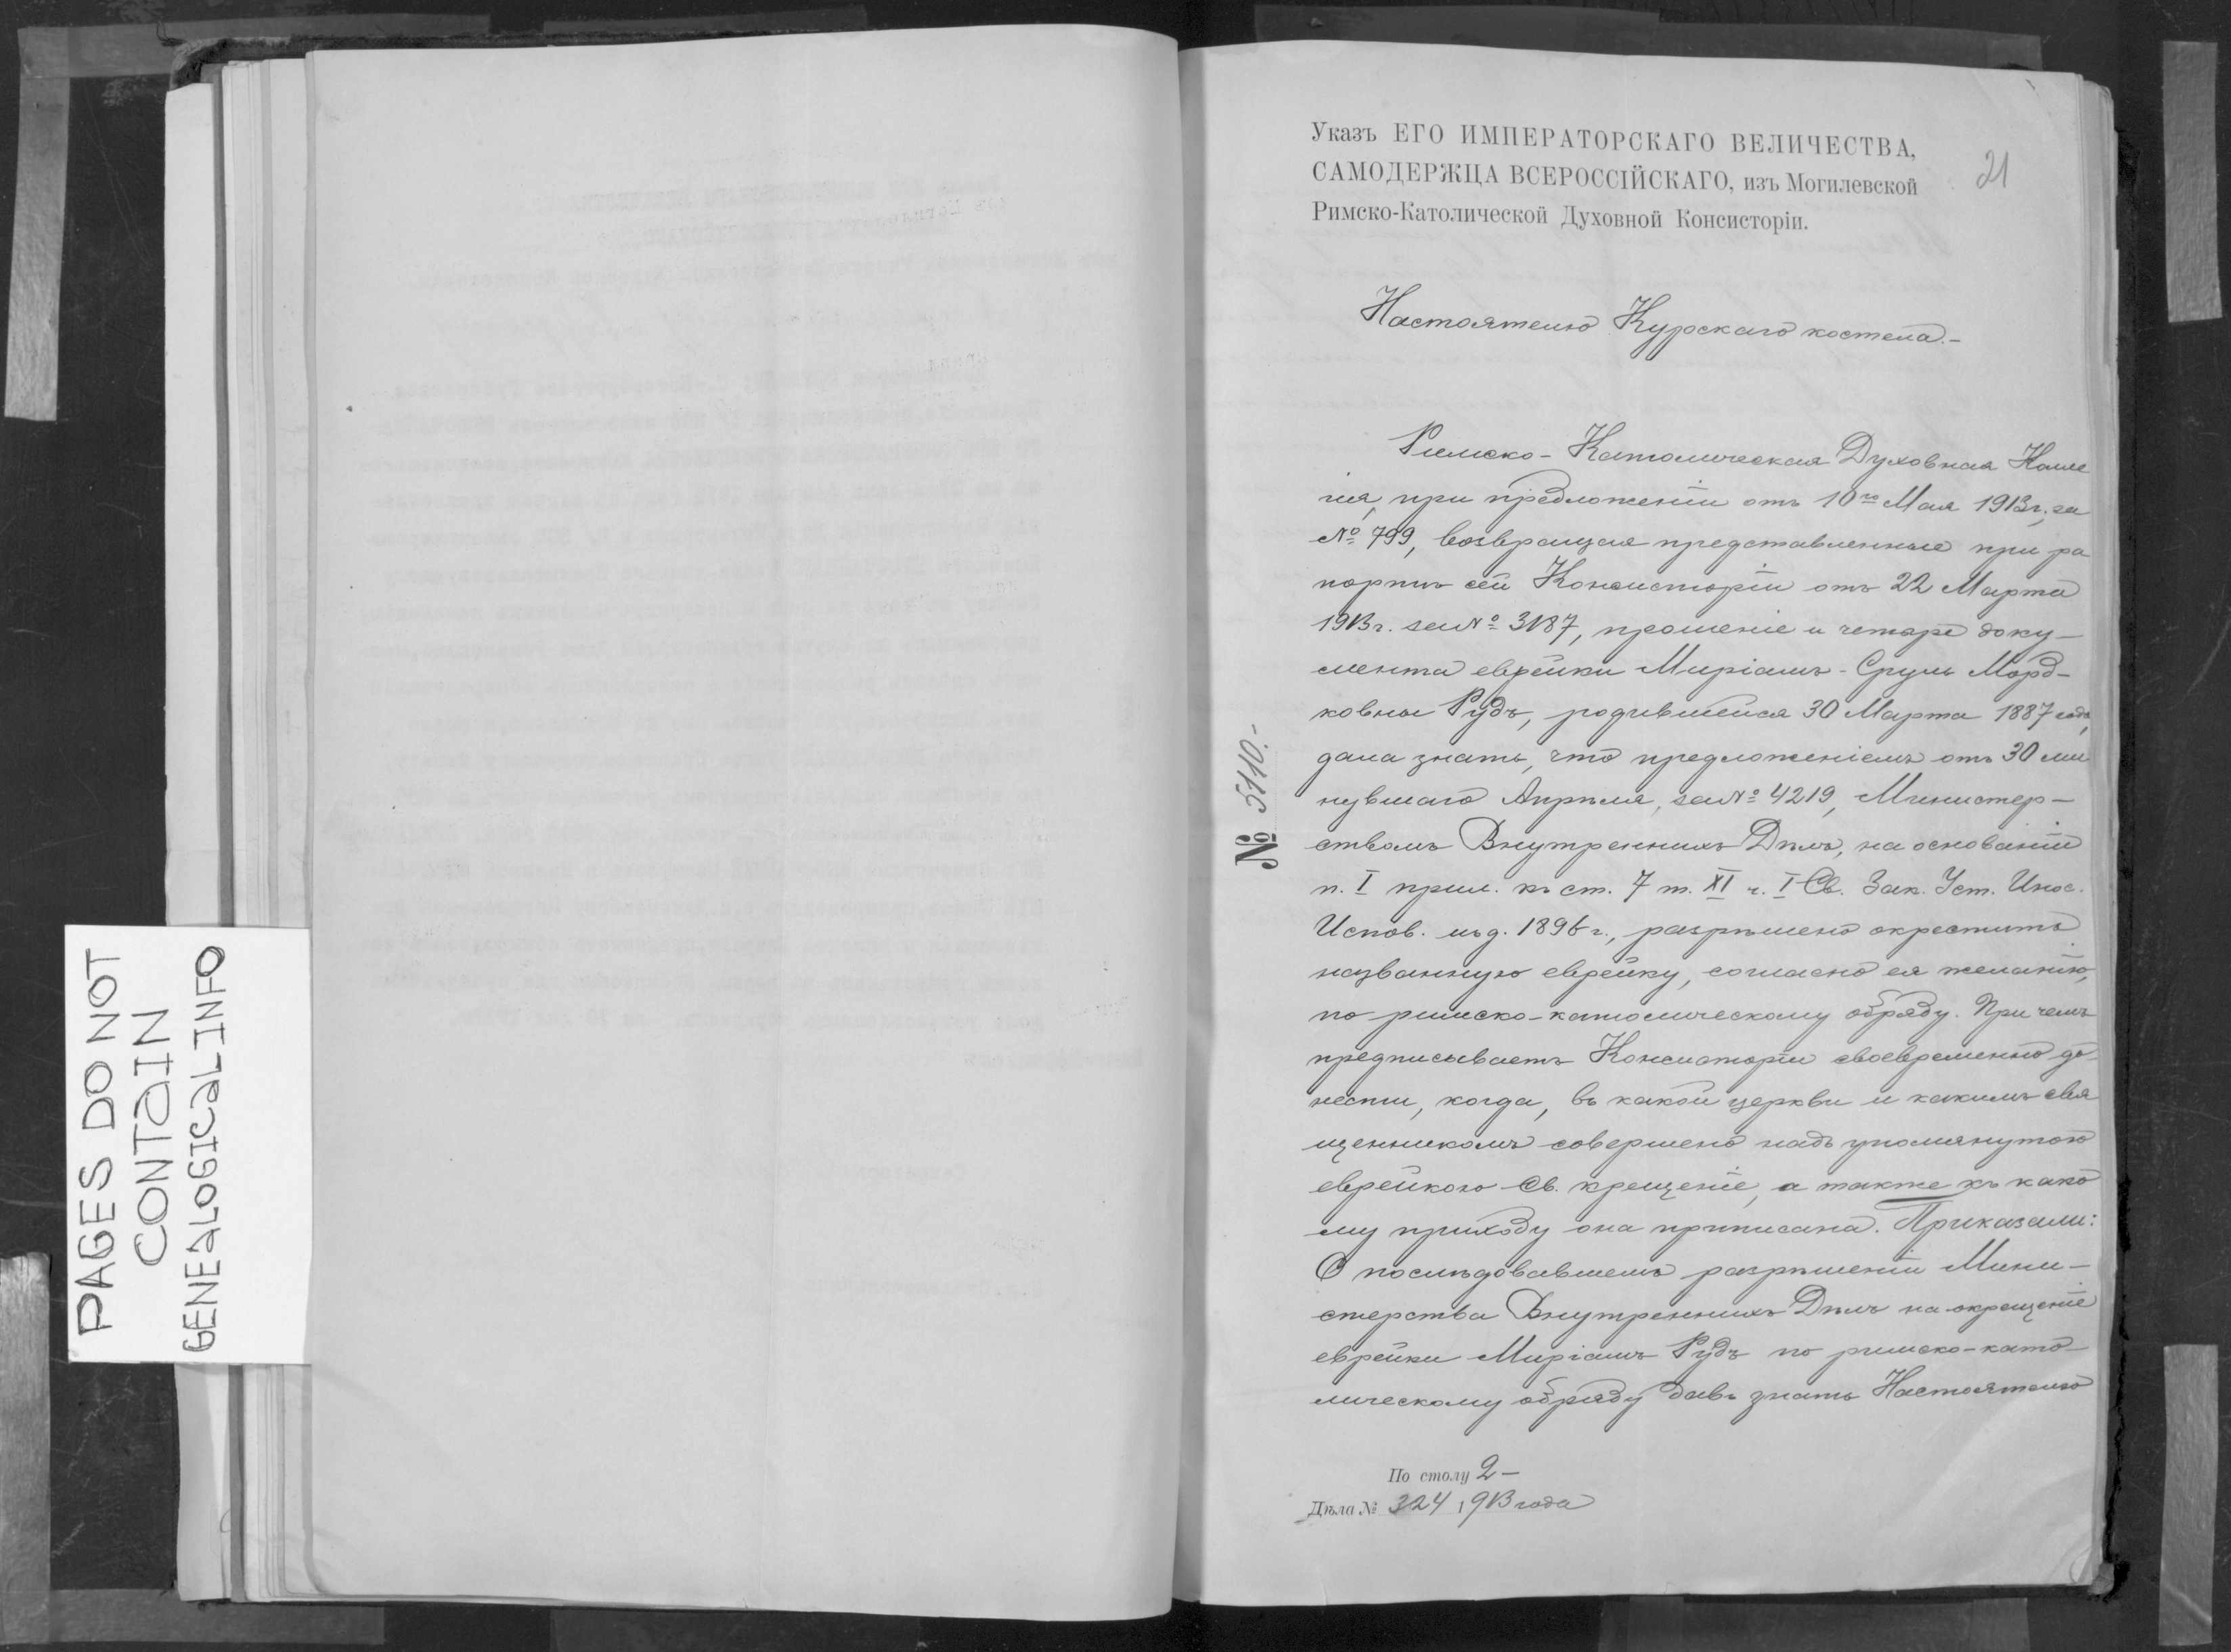 PAGES DO NOT
CONTAIN
GENEALOGICAL INFO
Указъ ЕГО ИМПЕРАТОРСКАГО ВЕЛИЧЕСТВА,
САМОДЕРЖЦА ВСЕРОССІЙСКАГО, изъ Могилевской
Римско-Католической Духовной Консисторіи.
21
Настоятелю Курскаго костела.-
№ 5110.-
Римско-Католическая Духовная Колле
гія, при предложеніи отъ 10го Мая 1913г., за
№ 799, возвращая представленные при ра
портѣ сей Консисторіи отъ 22 Марта
1913 г. за № 3187, прошеніе и четыре доку-
мента еврейки Миріамъ-Сруль Морд-
ковны Рудъ, родившейся 30 Марта 1887 года,
дала знать, что предложеніемъ отъ 30 ми
нувшаго Апрѣля, за № 4219, Министер-
ствомъ Внутреннихъ Дѣлъ, на основаніи
п. I прил. къ ст. 7 т. XI ч. I Св. Зак. Уст. Инос.
Испов. изд. 1896 г., разрѣшено окрестить
названную еврейку, согласно ея желанію,
по римско-католическому обряду. При чемъ
предписываетъ Консисторіи своевременно до
нести, когда, въ какой церкви и какимъ свя
щенникомъ совершено надъ упомянутою
еврейкою Св. крещеніе, а также къ како
му приходу она приписана. Приказали:
О послѣдовавшемъ разрѣшеніи Мини-
стерства Внутреннихъ Дѣлъ на окрещеніе
еврейки Миріамъ Рудъ по римско-като-
лическому обряду давъ знать Настоятелю
По столу 2-
Дѣла № 324 1913 года